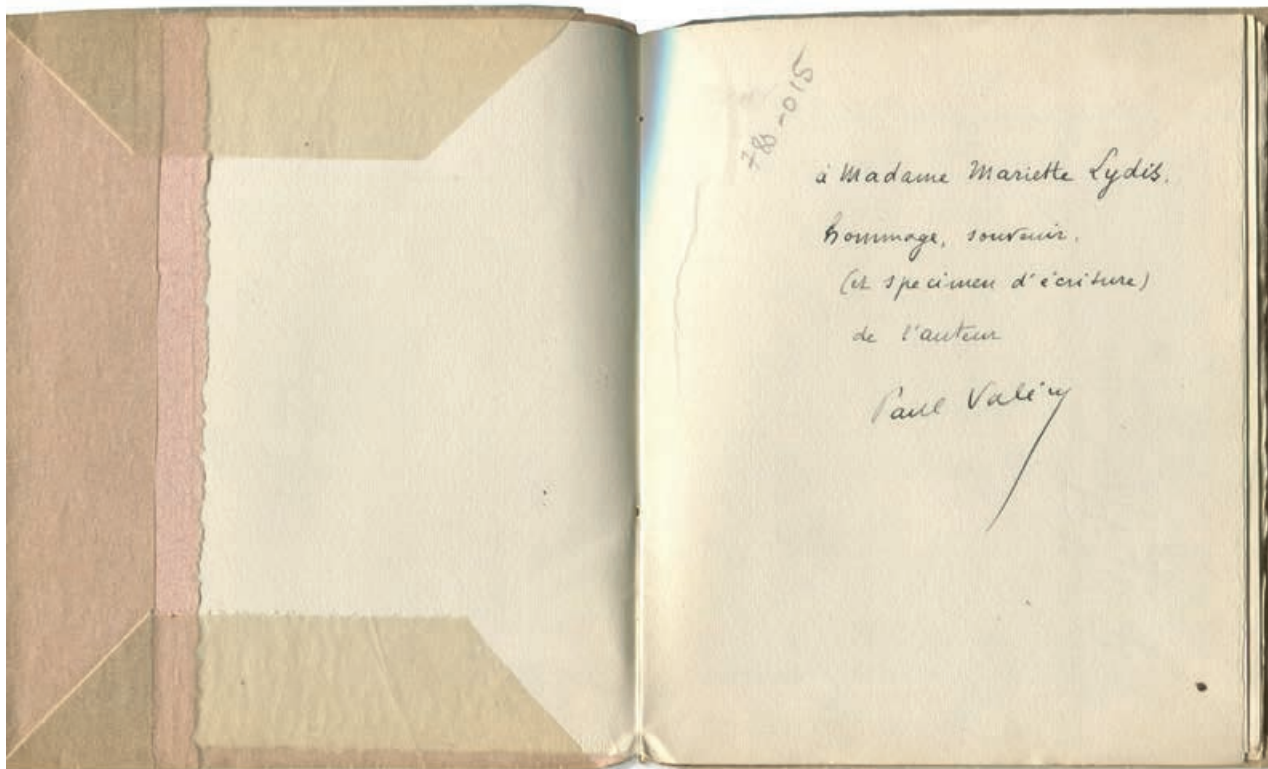 785-015
à Madame Mariette Lydis.
hommage, souvenir.
(et specimen d'écriture)
de l'auteur
Paul Valéry